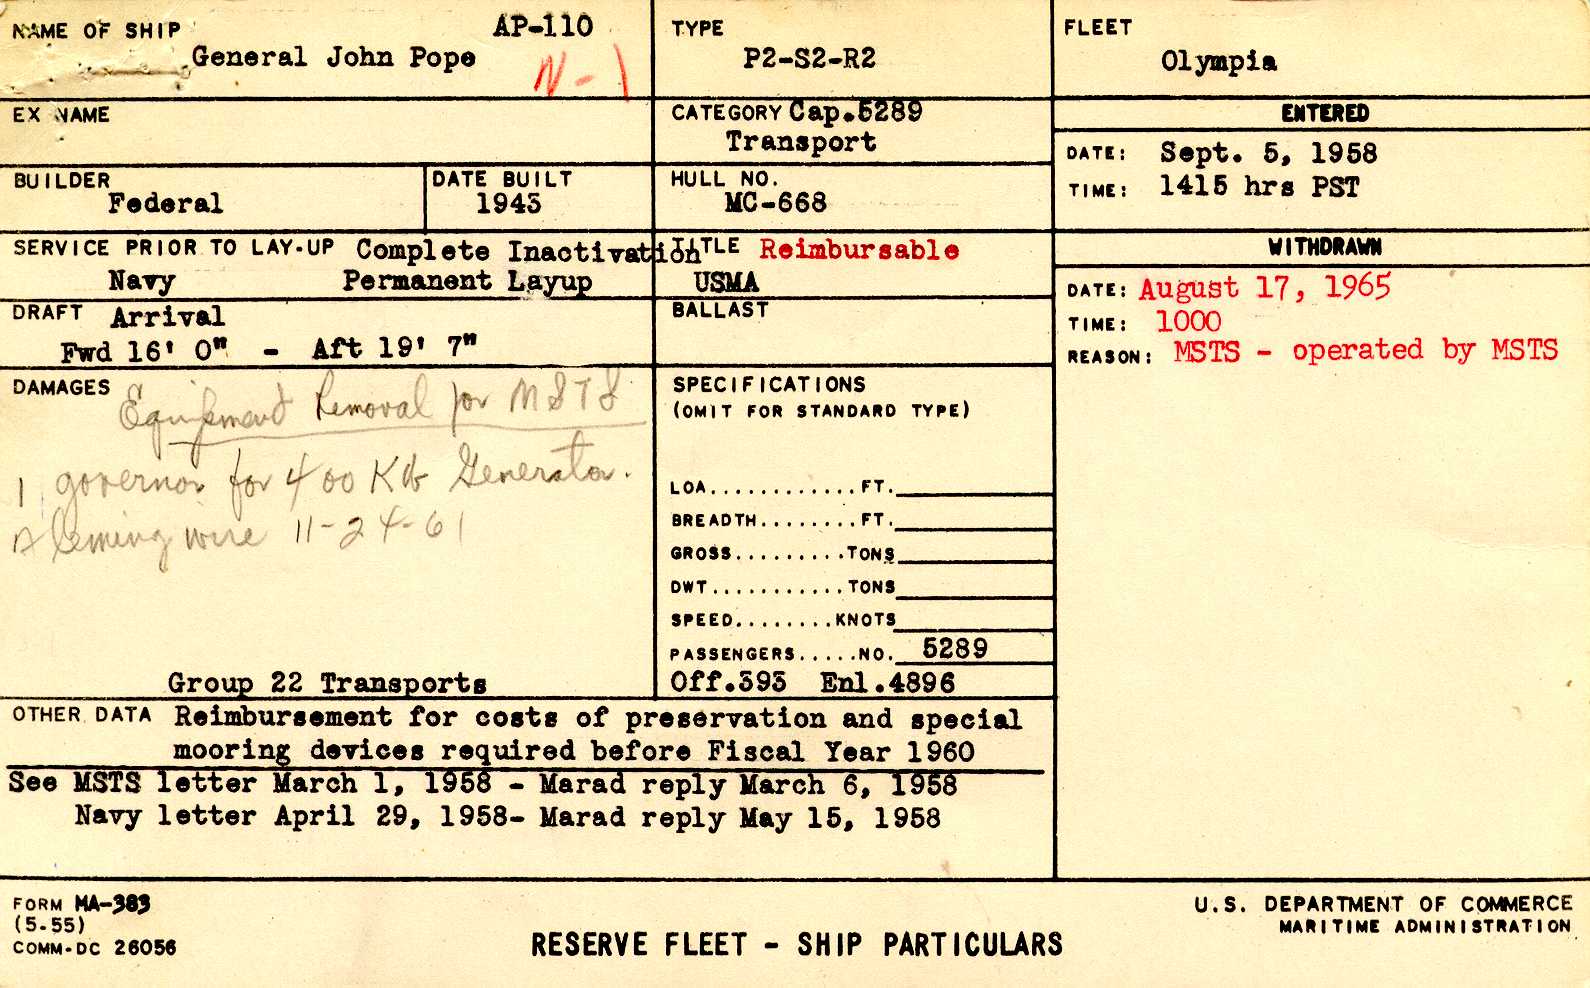 NAME OF SHIP AP-110
General John Pope
N-1
TYPE
P2-S2-R2
FLEET
Olympia
EX NAME
CATEGORY Cap.5289
Transport
ENTERED
DATE: Sept. 5, 1958
TIME: 1415 hrs PST
BUILDER
Federal
DATE BUILT
1943
HULL NO.
MC-668
SERVICE PRIOR TO LAY-UP Complete Inactivation
Navy Permanent Layup
TITLE Reimbursable
USMA
WITHDRAWN
DATE: August 17, 1965
TIME: 1000
REASON: MSTS - operated by MSTS
DRAFT Arrival
Fwd 16' 0" - Aft 19' 7"
BALLAST
DAMAGES Equipment Removal for MSTS
1 governor for 400 KW Generator.
wire 11-24-61
Group 22 Transports
SPECIFICATIONS
(OMIT FOR STANDARD TYPE)
LOA............FT.
BREADTH........FT.
GROSS.........TONS
DWT...........TONS
SPEED........KNOTS
PASSENGERS.....NO. 5289
Off.393 Enl.4896
OTHER DATA Reimbursement for costs of preservation and special
mooring devices required before Fiscal Year 1960
See MSTS letter March 1, 1958 - Marad reply March 6, 1958
Navy letter April 29, 1958- Marad reply May 15, 1958
FORM MA-383
(5-55)
COMM-DC 26056
RESERVE FLEET - SHIP PARTICULARS
U.S. DEPARTMENT OF COMMERCE
MARITIME ADMINISTRATION